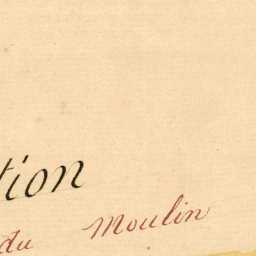 tion
du Moulin